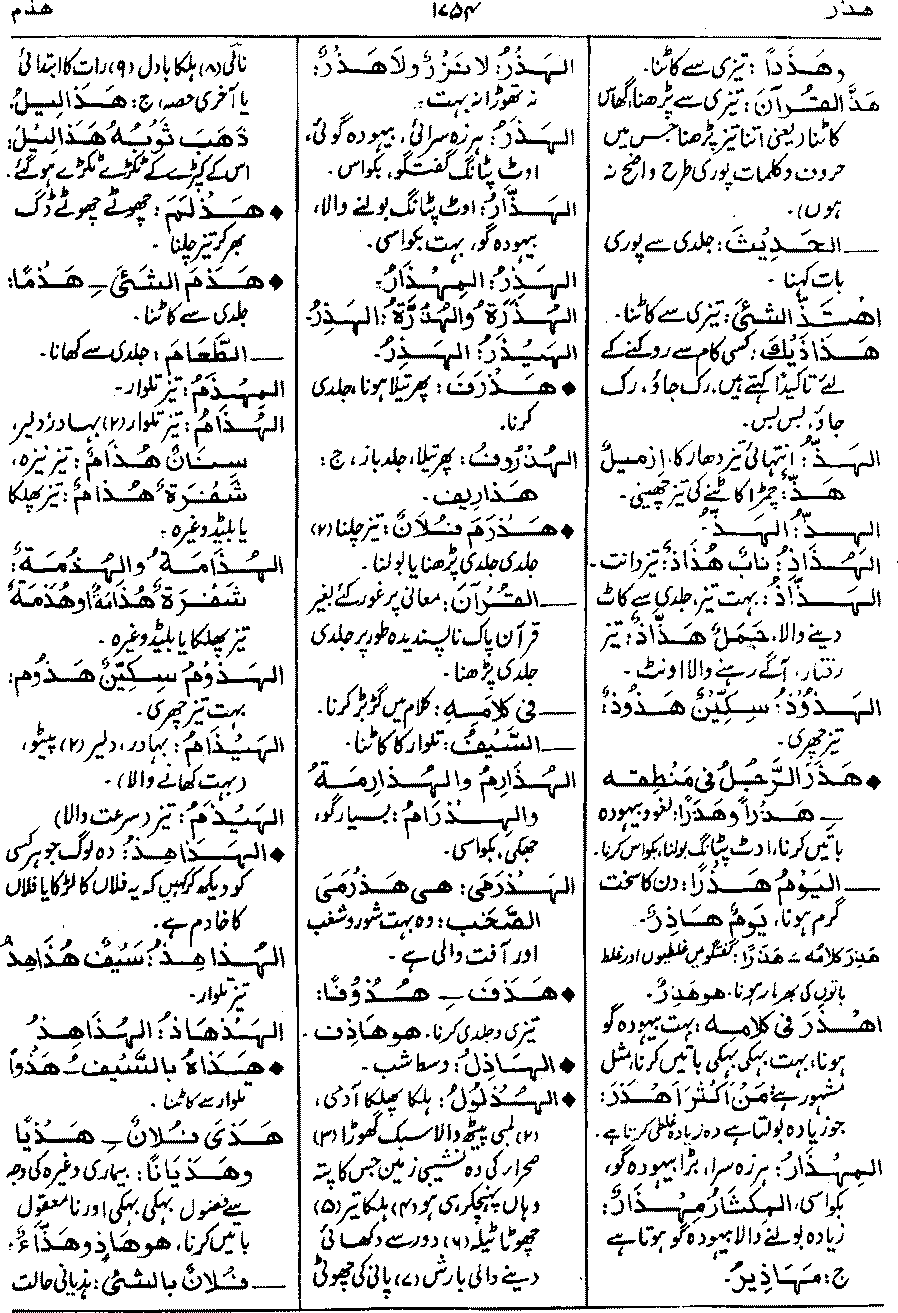 هذر ١٧٥٤ هذم
وهَذَذًا : تیزی سے کاٹنا۔
هَذَّ القُرآنَ: تیزی سے پڑھنا، گھاس
کاٹنا (یعنی اتنا تیز پڑھنا جس میں
حروف وکلمات پوری طرح واضح نہ
ہوں)۔
ـــ الحَدِيثَ: جلدی سے پوری
بات کہنا۔
اهْتَذَّ الشئَ: تیزی سے کاٹنا۔
هَذَاذَيْكَ: کسی کام سے روکنے کے
لئے تاکیدًا کہتے ہیں، رک جاؤ، رک
جاؤ، بس بس۔
الهَذُّ: انتہائی تیز دھار کا، إزميلٌ
هَذٌّ: چمڑا کاٹنے کی تیز چھینی۔
الهِذُّ: الهَذُّ۔
الهُذَاذُ: نابٌ هُذَاذٌ: تیز دانت۔
الهَذَّاذُ: بہت تیز، جلدی سے کاٹ
دینے والا، جَمَلٌ هَذَّاذٌ: تیز
رفتار، آگے رہنے والا اونٹ۔
الهَذُوذُ: سِكِّينٌ هَذُوذٌ:
تیز چھری۔
◆ هَذَرَ الرَّجُلُ فی مَنْطِقِه
ـِ هَذْرًا وهَذَرًا: لغو و بیہودہ
باتیں کرنا، اوٹ پٹانگ بولنا، بکواس کرنا۔
ـــ اليَوْمُ هَذْرًا: دن کا سخت
گرم ہونا، يَوْمٌ هَاذِرٌ۔
هَذِرَ كلامُه ـَ هَذَرًا: گفتگو میں غلطیوں اور غلط
باتوں کی بھرمار ہونا۔ هو هَذِرٌ۔
أهْذَرَ فی كلامِه: بہت بیہودہ گو
ہونا، بہت بہکی بہکی باتیں کرنا، مثل
مشہور ہے: مَنْ أكْثَرَ أهْذَرَ:
جو زیادہ بولتا ہے وہ زیادہ غلطی کرتا ہے۔
المِهْذَارُ: ہرزہ سرا، بڑا بیہودہ گو،
بکواسی، المِكْثَارُ مِهْذَارٌ:
زیادہ بولنے والا بیہودہ گو ہوتا ہے
ج: مَهَاذِيرُ۔
الهَذْرُ: لا نَزْرٌ ولا هَذْرٌ:
نہ تھوڑا نہ بہت۔
الهَذَرُ: ہرزہ سرائی، بیہودہ گوئی،
اوٹ پٹانگ گفتگو، بکواس۔
الهَذَّارُ: اوٹ پٹانگ بولنے والا،
بیہودہ گو، بہت بکواسی۔
الهَذِرُ: المِهْذَارُ۔
الهُذَرَةُ والهُذُرَّةُ: الهَذِرُ۔
الهَيْذَرُ: الهَذِرُ۔
◆ هَذْرَفَ: پھرتیلا ہونا، جلدی
کرنا۔
الهُذْرُوفُ: پھرتیلا، جلد باز، ج:
هَذَارِيف۔
◆ هَذْرَمَ فُلَانٌ: تیز چلنا (۲)
جلدی جلدی پڑھنا یا بولنا۔
ـــ القُرْآنَ: معانی پر غور کئے بغیر
قرآن پاک ناپسندیدہ طور پر جلدی
جلدی پڑھنا۔
ـــ فی كلامِه: کلام میں گڑبڑ کرنا۔
ـــ السَّيْفُ: تلوار کا کاٹنا۔
الهُذَارِمُ والهُذارِمَةُ
والهِذْرَامُ: بسیار گو،
جھکی، بکواسی۔
الهَذْرَمَى: هى هَذْرَمَى
الصَّخَب: وہ بہت شور و شغب
اور آفت والی ہے۔
◆ هَذَفَ ـِ هُذُوفًا:
تیزی و جلدی کرنا۔ هو هَاذِف۔
◆ الهَاذِلُ: وسط شب۔
◆ الهُذْلُولُ: ہلکا پھلکا آدمی،
(۲) لمبی پیٹھ والا سبک گھوڑا (۳)
صحراء کی وہ نشیبی زمین جس کا پتہ
وہاں پہنچکر ہی ہو (۴) ہلکا تیر (۵)
چھوٹا ٹیلہ (۶) دور سے دکھائی
دینے والی بارش (۷) پانی کی چھوٹی
نالی (۸) ہلکا بادل (۹) رات کا ابتدائی
یا آخری حصہ، ج: هَذَالِيلُ۔
ذَهَبَ ثَوْبُهُ هَذَالِيلَ:
اس کے کپڑے کے ٹکڑے ٹکڑے ہوگئے۔
◆ هَذْلَمَ: چھوٹے چھوٹے ڈگ
بھر کر تیز چلنا۔
◆ هَذَمَ الشئَ ـِ هَذْمًا:
جلدی سے کاٹنا۔
ـــ الطَّعَامَ: جلدی سے کھانا۔
المِهْذَمُ: تیز تلوار۔
الهُذَامُ: تیز تلوار (۲) بہادر ودلیر،
سِنَانٌ هُذَامٌ: تیز نیزہ،
شَفْرَةٌ هُذَامٌ: تیز پھلکا
یا بلیڈ وغیرہ۔
الهُذَامَةُ والهُذَمَةُ:
شَفْرَةٌ هُذَامَةٌ أو هُذَمَةٌ
تیز پھلکا یا بلیڈ وغیرہ۔
الهَذُومُ سِكِّينٌ هَذُوم:
بہت تیز چھری۔
الهَيْذَامُ: بہادر، دلیر (۲) پیٹو،
(بہت کھانے والا)۔
الهَيْذَمُ: تیز (سرعت والا)
◆ الهَذَاهِذُ: وہ لوگ جو ہر کسی
کو دیکھ کر کہیں کہ یہ فلاں کا لڑکا یا فلاں
کا خادم ہے۔
الهُذاهِذُ: سَيْفٌ هُذَاهِذٌ
تیز تلوار۔
الهَذْهَاذُ: الهُذَاهِذُ
◆ هَذَاهُ بالسَّيْفِ ـُ هَذْوًا
تلوار سے کاٹنا۔
هَذَى فُلَانٌ ـِ هَذْيًا
وهَذَيَانًا: بیماری وغیرہ کی وجہ
سے فضول بہکی بہکی اور نامعقول
باتیں کرنا، هو هَاذٍ وهَذَّاءٌ،
ـــ فُلَانٌ بالشئ: ہذیانی حالت